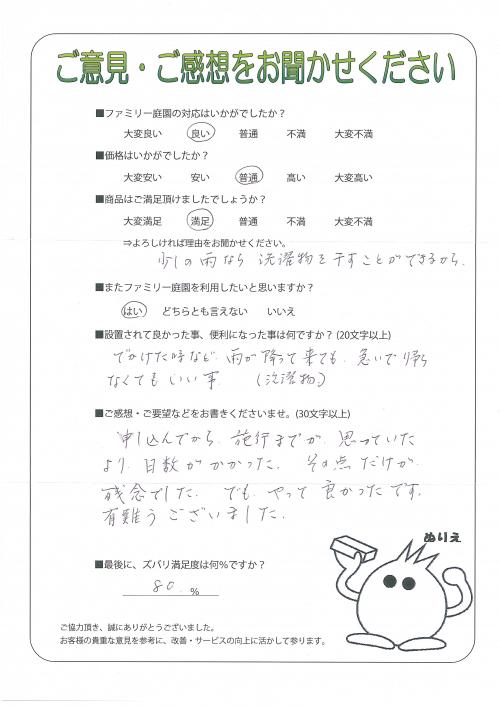 ご意見・ご感想をお聞かせください
■ファミリー庭園の対応はいかがでしたか？
大変良い 良い 普通 不満 大変不満
■価格はいかがでしたか？
大変安い 安い 普通 高い 大変高い
■商品はご満足頂けましたでしょうか？
大変満足 満足 普通 不満 大変不満
⇒よろしければ理由をお聞かせください。
少しの雨なら 洗濯物を干すことができるから、
■またファミリー庭園を利用したいと思いますか？
はい どちらとも言えない いいえ
■設置されて良かった事、便利になった事は何ですか？(20文字以上)
でかけた時など、雨が降って来ても、急いで帰ら
なくてもいい事 (洗濯物)
■ご感想・ご要望などをお書きくださいませ。(30文字以上)
申し込んでから、施行までが、思っていた
より、日数がかかった。その点だけが、
残念でした。でも、やって良かったです。
有難うございました。
ぬりえ
■最後に、ズバリ満足度は何%ですか？
80 %
ご協力頂き、誠にありがとうございました。
お客様の貴重な意見を参考に、改善・サービスの向上に活かして参ります。